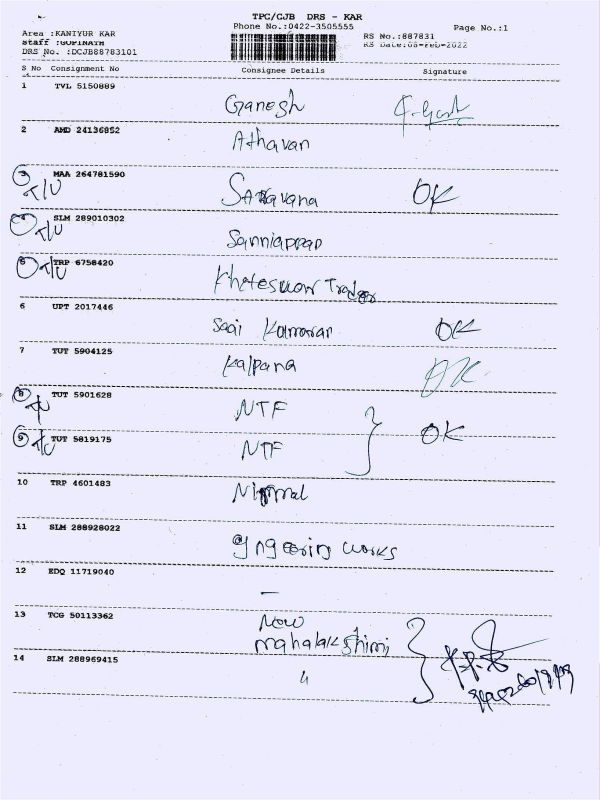 TPC/CJB DRS - KAR
Phone No.:0422-3505555
Page No.:1
Area :KANIYUR KAR
Staff :GOPINATH
DRS No. :DCJB88783101
RS No.:887831
RS Date:05-Feb-2022
S No Consignment No Consignee Details Signature
1 TVL 5150889 Ganesh
2 AMD 24136852 Athavan
3 MAA 264781590 Saravana OK
T/U
4 SLM 289010302 Sanniappan
T/U
5 TRP 6758420 Khateswar Trader
T/U
6 UPT 2017446 Saai Kumaran OK
7 TUT 5904125 Kalpana OK
8 TUT 5901628 NTF
T/U
9 TUT 5819175 NTF OK
T/U
10 TRP 4601483 Nirmal
11 SLM 288928022 Engeering works
12 EDQ 11719040 —
13 TCG 50113362 New
mahalakshimi
14 SLM 288969415 "